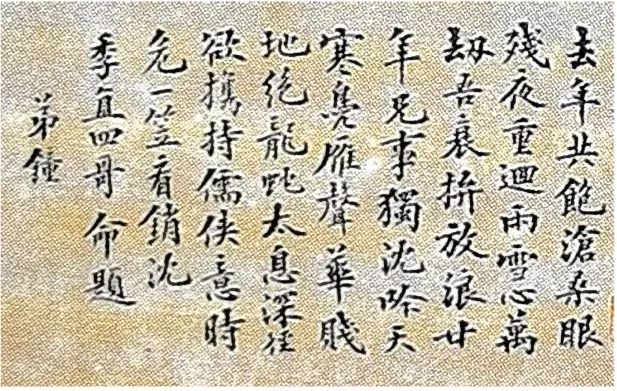 去年共飽滄桑眼
殘夜重迴雨雪心萬
劫吾衰拚放浪廿
年兄事獨沈吟天
寒鳧雁聲華賤
地絕龍蛇太息深徑
欲攜持儒俠意時
危一笠看銷沈
季直四哥命題
弟鐘